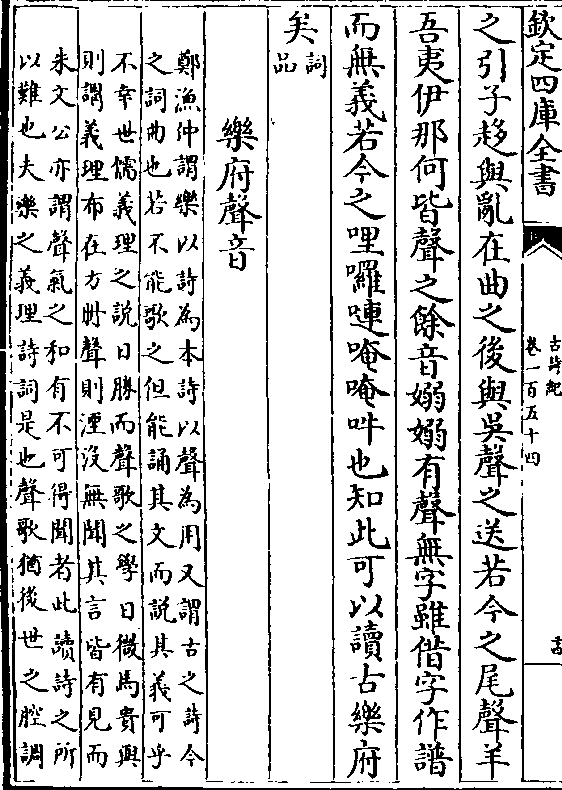 欽定四庫全書
古詩紀
卷一百五十四
之引子趍與亂在曲之後與吳聲之送若今之尾聲羊
吾夷伊那何皆聲之餘音嫋嫋有聲無字雖偕字作譜
而無義若今之哩囉嗹唵唵吽也知此可以讀古樂府
矣詞品
樂府聲音
鄭漁仲謂樂以詩為本詩以聲為用又謂古之詩今
之詞曲也若不能歌之但能誦其文而說其義可乎
不幸世儒義理之說日勝而聲歌之學日微馬貴與
則謂義理布在方冊聲則湮沒無聞其言皆有見而
朱文公亦謂聲氣之和有不可得聞者此讀詩之所
以難也夫樂之義理詩詞是也聲歌猶後世之腔調